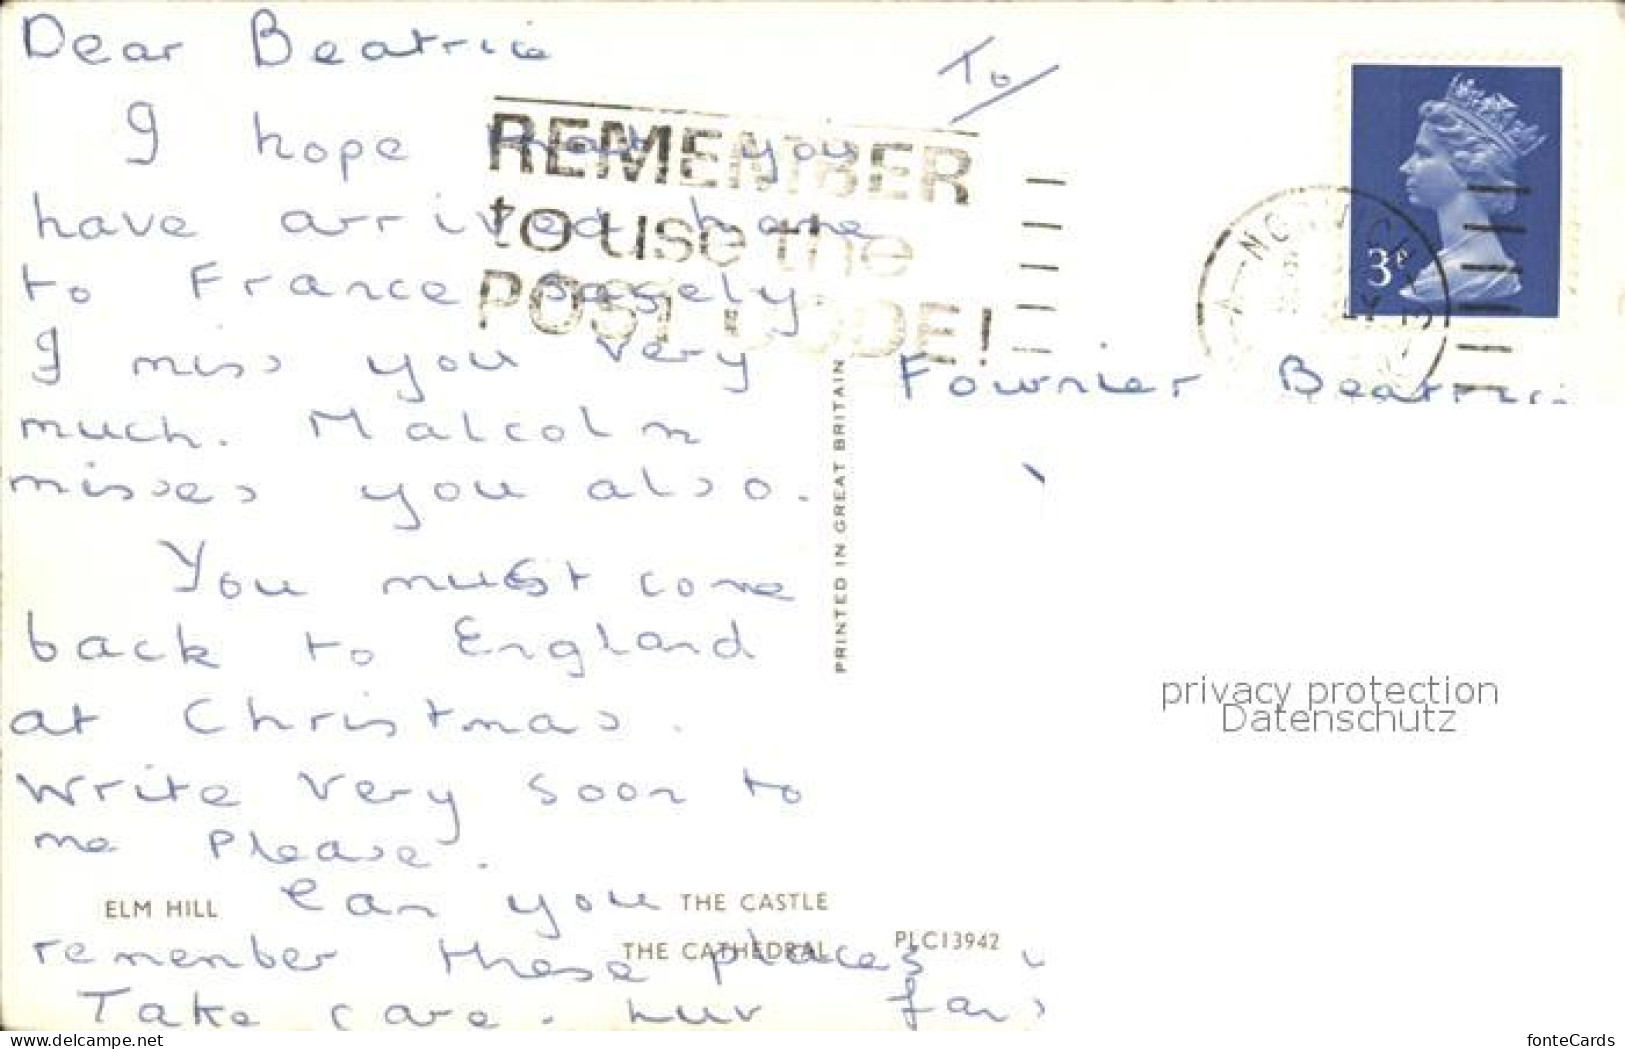 Dear Beatrice
To
I hope that you
have arrived home
to France safely
I miss you very
much. Malcolm
misses you also.
You must come
back to England
at Christmas.
Write very soon to
me Please.
Can you
remember these places
Take care. luv
REMEMBER
to use the
POST CODE!
3P
Fournier Beatrice
PRINTED IN GREAT BRITAIN
privacy protection
Datenschutz
ELM HILL
THE CASTLE
THE CATHEDRAL
PLC13942
www.delcampe.net
fonteCards